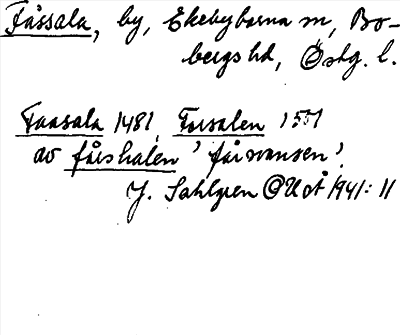 Fåssala, by, Ekebyborna sn, Bo-
bergs hd, Östg. l.
Faasala 1481, Forsalen 1551
av fårshalen 'fårsvansen'.
J. Sahlgren @UoÅ 1941: 11